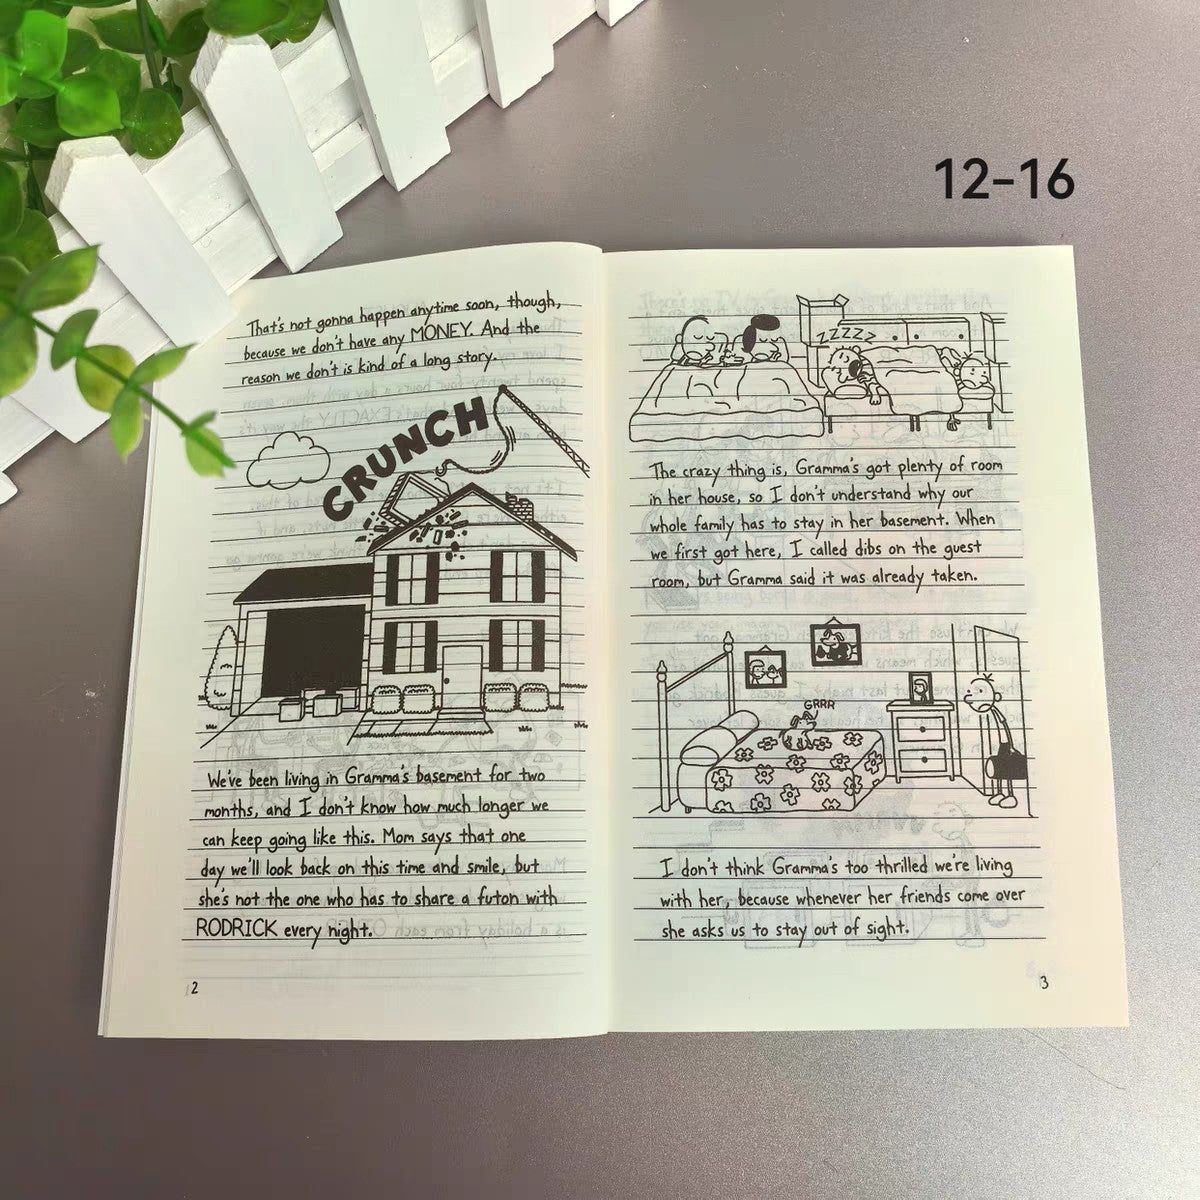 12-16
That's not gonna happen anytime soon, though,
because we don't have any MONEY. And the
reason we don't is kind of a long story.
CRUNCH
We've been living in Gramma's basement for two
months, and I don't know how much longer we
can keep going like this. Mom says that one
day we'll look back on this time and smile, but
she's not the one who has to share a futon with
RODRICK every night.
2
ZZZZZ
The crazy thing is, Gramma's got plenty of room
in her house, so I don't understand why our
whole family has to stay in her basement. When
we first got here, I called dibs on the guest
room, but Gramma said it was already taken.
GRRR
I don't think Gramma's too thrilled we're living
with her, because whenever her friends come over
she asks us to stay out of sight.
3